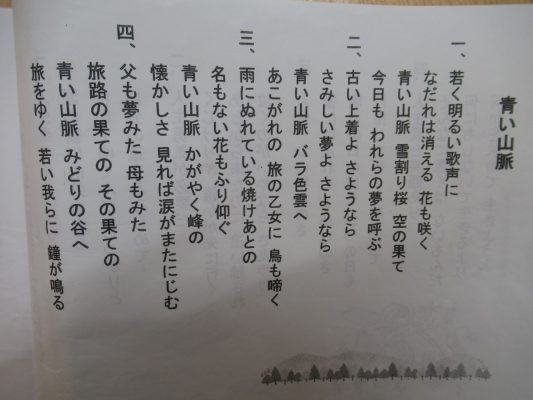 青い山脈
一、若く明るい歌声に
なだれは消える 花も咲く
青い山脈 雪割り桜 空の果て
今日も われらの夢を呼ぶ
二、古い上着よ さようなら
さみしい夢よ さようなら
青い山脈 バラ色雲へ
あこがれの 旅の乙女に 鳥も啼く
三、雨にぬれている焼けあとの
名もない花もふり仰ぐ
青い山脈 かがやく峰の
懐かしさ 見れば涙がまたにじむ
四、父も夢みた 母もみた
旅路の果ての その果ての
青い山脈 みどりの谷へ
旅をゆく 若い我らに 鐘が鳴る